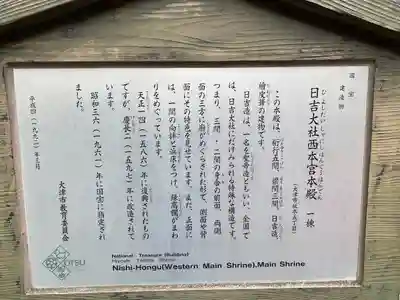 国宝
建造物
日吉大社西本宮本殿 一棟
ひよしたいしゃにしほんぐうほんでん
(大津市坂本五丁目)
この本殿は、桁行五間、梁間三間、日吉造、
檜皮葺の建物です。
日吉造は、一名を聖帝造ともいい、全国で
は、日吉大社にだけみられる特殊な構造です。
つまり、三間・二間の身舎の前面、両側
面の三方に廂がめぐらされた形で、側面や背
面にその特色を見せています。また、正面に
は、一間の向拝と浜床をつけ、縁高欄がまわ
りをめぐっています。
天正一四(一五八六)年に復興されたもの
ですが、慶長二(一五九七)年に改造されて
います。
昭和三六(一九六一)年に国宝に指定され
ました。
大津市教育委員会
平成四(一九九二)年三月
OTSU
National Treasure (Building)
Hiyoshi Taisha Shrine
Nishi-Hongu(Western Main Shrine),Main Shrine